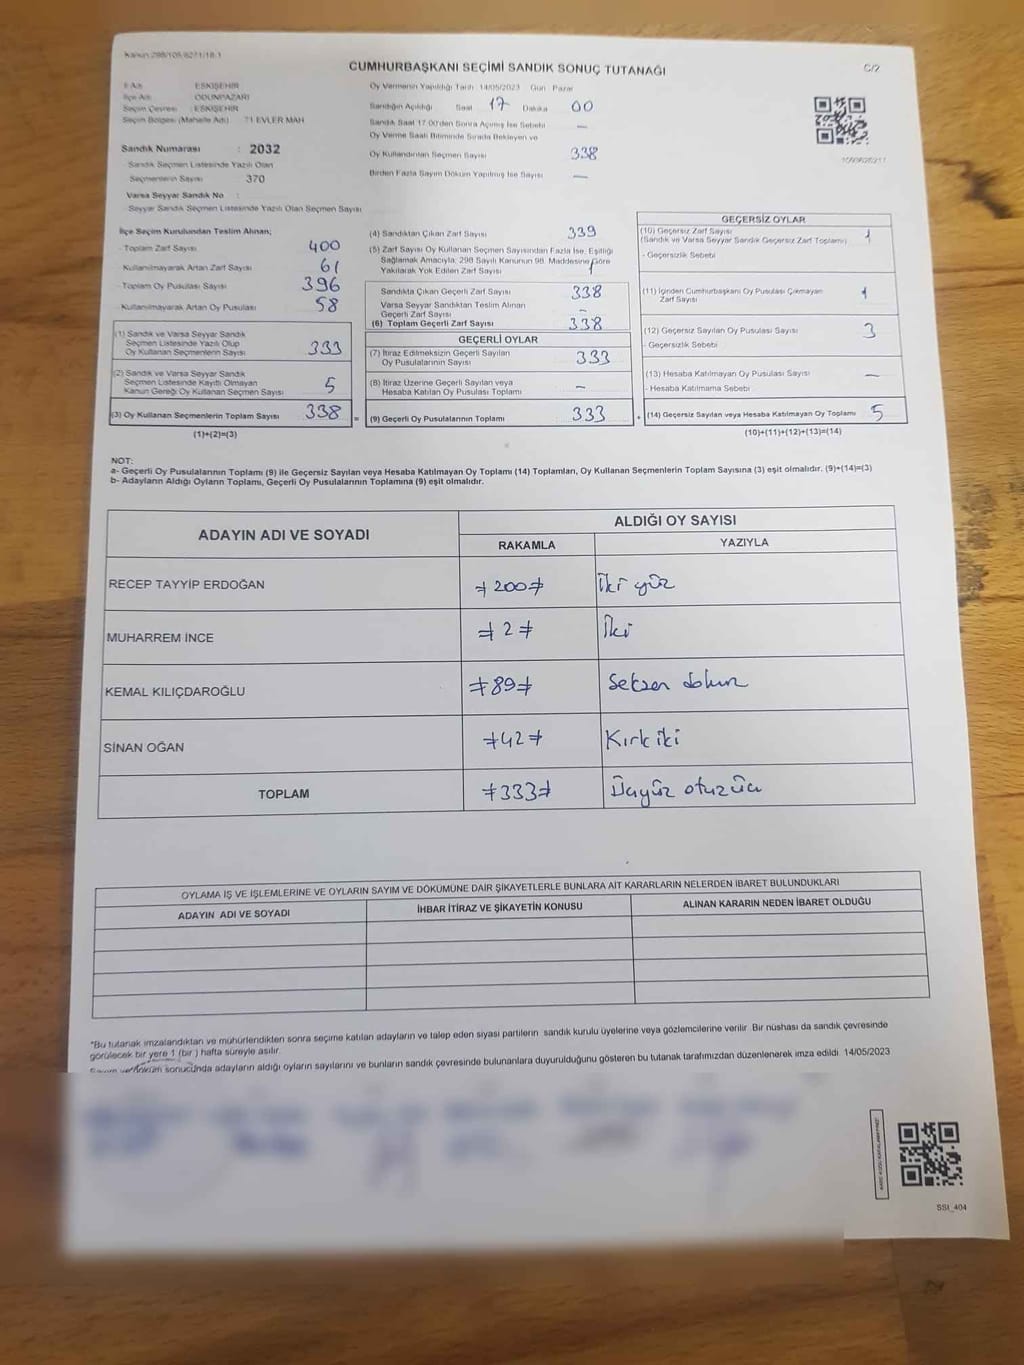 Kanun:298/105/6271/18-1
CUMHURBAŞKANI SEÇİMİ SANDIK SONUÇ TUTANAĞI
C/2
İl Adı : ESKİŞEHİR
İlçe Adı : ODUNPAZARI
Seçim Çevresi : ESKİŞEHİR
Seçim Bölgesi (Mahalle Adı) : 71 EVLER MAH
Sandık Numarası : 2032
Sandık Seçmen Listesinde Yazılı Olan
Seçmenlerin Sayısı 370
Varsa Seyyar Sandık No :
Seyyar Sandık Seçmen Listesinde Yazılı Olan Seçmen Sayısı
Oy Vermenin Yapıldığı Tarih : 14/05/2023 Gün : Pazar
Sandığın Açıldığı Saat 17 Dakika 00
Sandık Saat 17.00'den Sonra Açılmış İse Sebebi —
Oy Verme Saati Bitiminde Sırada Bekleyen ve
Oy Kullandırılan Seçmen Sayısı 338
Birden Fazla Sayım Döküm Yapılmış İse Sayısı —
İlçe Seçim Kurulundan Teslim Alınan;
- Toplam Zarf Sayısı 400
- Kullanılmayarak Artan Zarf Sayısı 61
- Toplam Oy Pusulası Sayısı 396
- Kullanılmayarak Artan Oy Pusulası 58
(1) Sandık ve Varsa Seyyar Sandık
Seçmen Listesinde Yazılı Olup
Oy Kullanan Seçmenlerin Sayısı 333
(2) Sandık ve Varsa Seyyar Sandık
Seçmen Listesinde Kayıtlı Olmayan
Kanun Gereği Oy Kullanan Seçmen Sayısı 5
(3) Oy Kullanan Seçmenlerin Toplam Sayısı 338 =
(1)+(2)=(3)
(4) Sandıktan Çıkan Zarf Sayısı 339
(5) Zarf Sayısı Oy Kullanan Seçmen Sayısından Fazla İse, Eşitliği
Sağlamak Amacıyla, 298 Sayılı Kanunun 98. Maddesine Göre
Yakılarak Yok Edilen Zarf Sayısı 1
Sandıkta Çıkan Geçerli Zarf Sayısı 338
Varsa Seyyar Sandıktan Teslim Alınan
Geçerli Zarf Sayısı —
(6) Toplam Geçerli Zarf Sayısı 338
GEÇERLİ OYLAR
(7) İtiraz Edilmeksizin Geçerli Sayılan
Oy Pusulalarının Sayısı 333
(8) İtiraz Üzerine Geçerli Sayılan veya
Hesaba Katılan Oy Pusulası Toplamı —
(9) Geçerli Oy Pusulalarının Toplamı 333 +
GEÇERSİZ OYLAR
(10) Geçersiz Zarf Sayısı 1
(Sandık ve Varsa Seyyar Sandık Geçersiz Zarf Toplamı)
- Geçersizlik Sebebi
(11) İçinden Cumhurbaşkanı Oy Pusulası Çıkmayan
Zarf Sayısı 1
(12) Geçersiz Sayılan Oy Pusulası Sayısı 3
- Geçersizlik Sebebi
(13) Hesaba Katılmayan Oy Pusulası Sayısı —
- Hesaba Katılmama Sebebi
(14) Geçersiz Sayılan veya Hesaba Katılmayan Oy Toplamı 5
(10)+(11)+(12)+(13)=(14)
NOT:
a- Geçerli Oy Pusulalarının Toplamı (9) ile Geçersiz Sayılan veya Hesaba Katılmayan Oy Toplamı (14) Toplamları, Oy Kullanan Seçmenlerin Toplam Sayısına (3) eşit olmalıdır. (9)+(14)=(3)
b- Adayların Aldığı Oyların Toplamı, Geçerli Oy Pusulalarının Toplamına (9) eşit olmalıdır.
ADAYIN ADI VE SOYADI
ALDIĞI OY SAYISI
RAKAMLA YAZIYLA
RECEP TAYYİP ERDOĞAN ≠200≠ İki yüz
MUHARREM İNCE ≠2≠ İki
KEMAL KILIÇDAROĞLU ≠89≠ Seksen dokuz
SİNAN OĞAN ≠42≠ Kırk iki
TOPLAM ≠333≠ Üçyüz otuzüç
OYLAMA İŞ VE İŞLEMLERİNE VE OYLARIN SAYIM VE DÖKÜMÜNE DAİR ŞİKAYETLERLE BUNLARA AİT KARARLARIN NELERDEN İBARET BULUNDUKLARI
ADAYIN ADI VE SOYADI İHBAR İTİRAZ VE ŞİKAYETİN KONUSU ALINAN KARARIN NEDEN İBARET OLDUĞU
*Bu tutanak imzalandıktan ve mühürlendikten sonra seçime katılan adayların ve talep eden siyasi partilerin sandık kurulu üyelerine veya gözlemcilerine verilir. Bir nüshası da sandık çevresinde
görülecek bir yere 1 (bir ) hafta süreyle asılır.
Sayım ve döküm sonucunda adayların aldığı oyların sayılarını ve bunların sandık çevresinde bulunanlara duyurulduğunu gösteren bu tutanak tarafımızdan düzenlenerek imza edildi. 14/05/2023
SSI_404